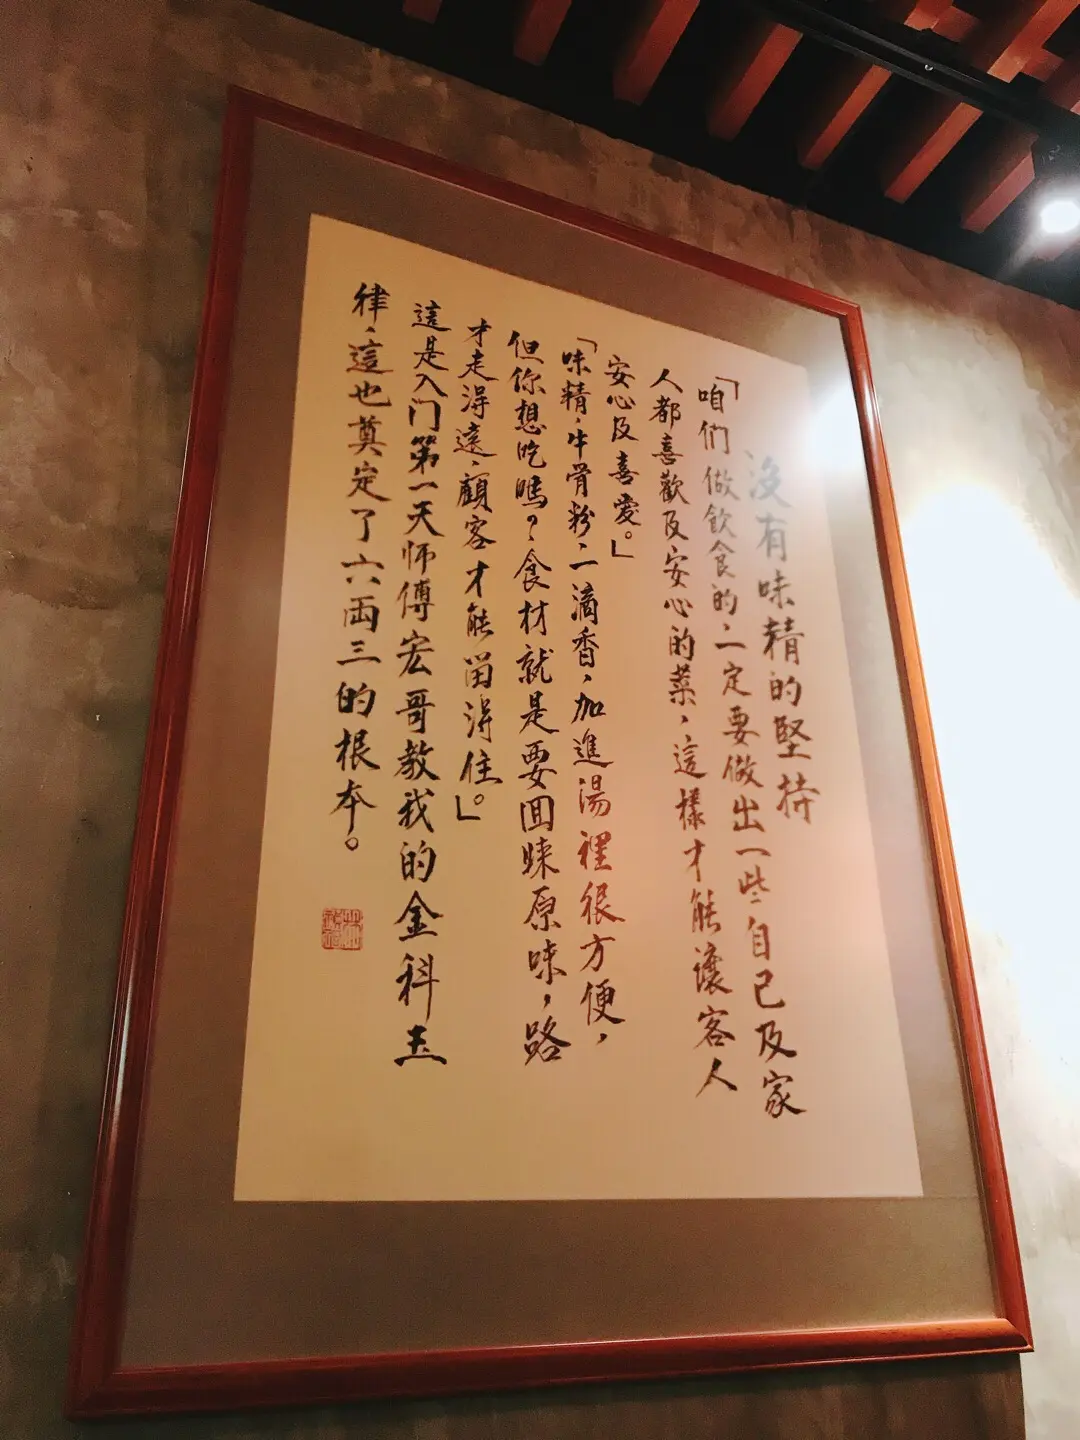 沒有味精的堅持
「咱们做飲食的,一定要做出一些自己及家
人都喜歡及安心的菜,這樣才能讓客人
安心及喜愛。」
「味精,牛骨粉二滴香,加進湯裡很方便,
但你想吃嗎?,食材就是要回味原味,路
才走得遠,顧客才能留得住。」
這是入门第一天师傅宏哥教我的金科玉
律,這也奠定了六両三的根本。